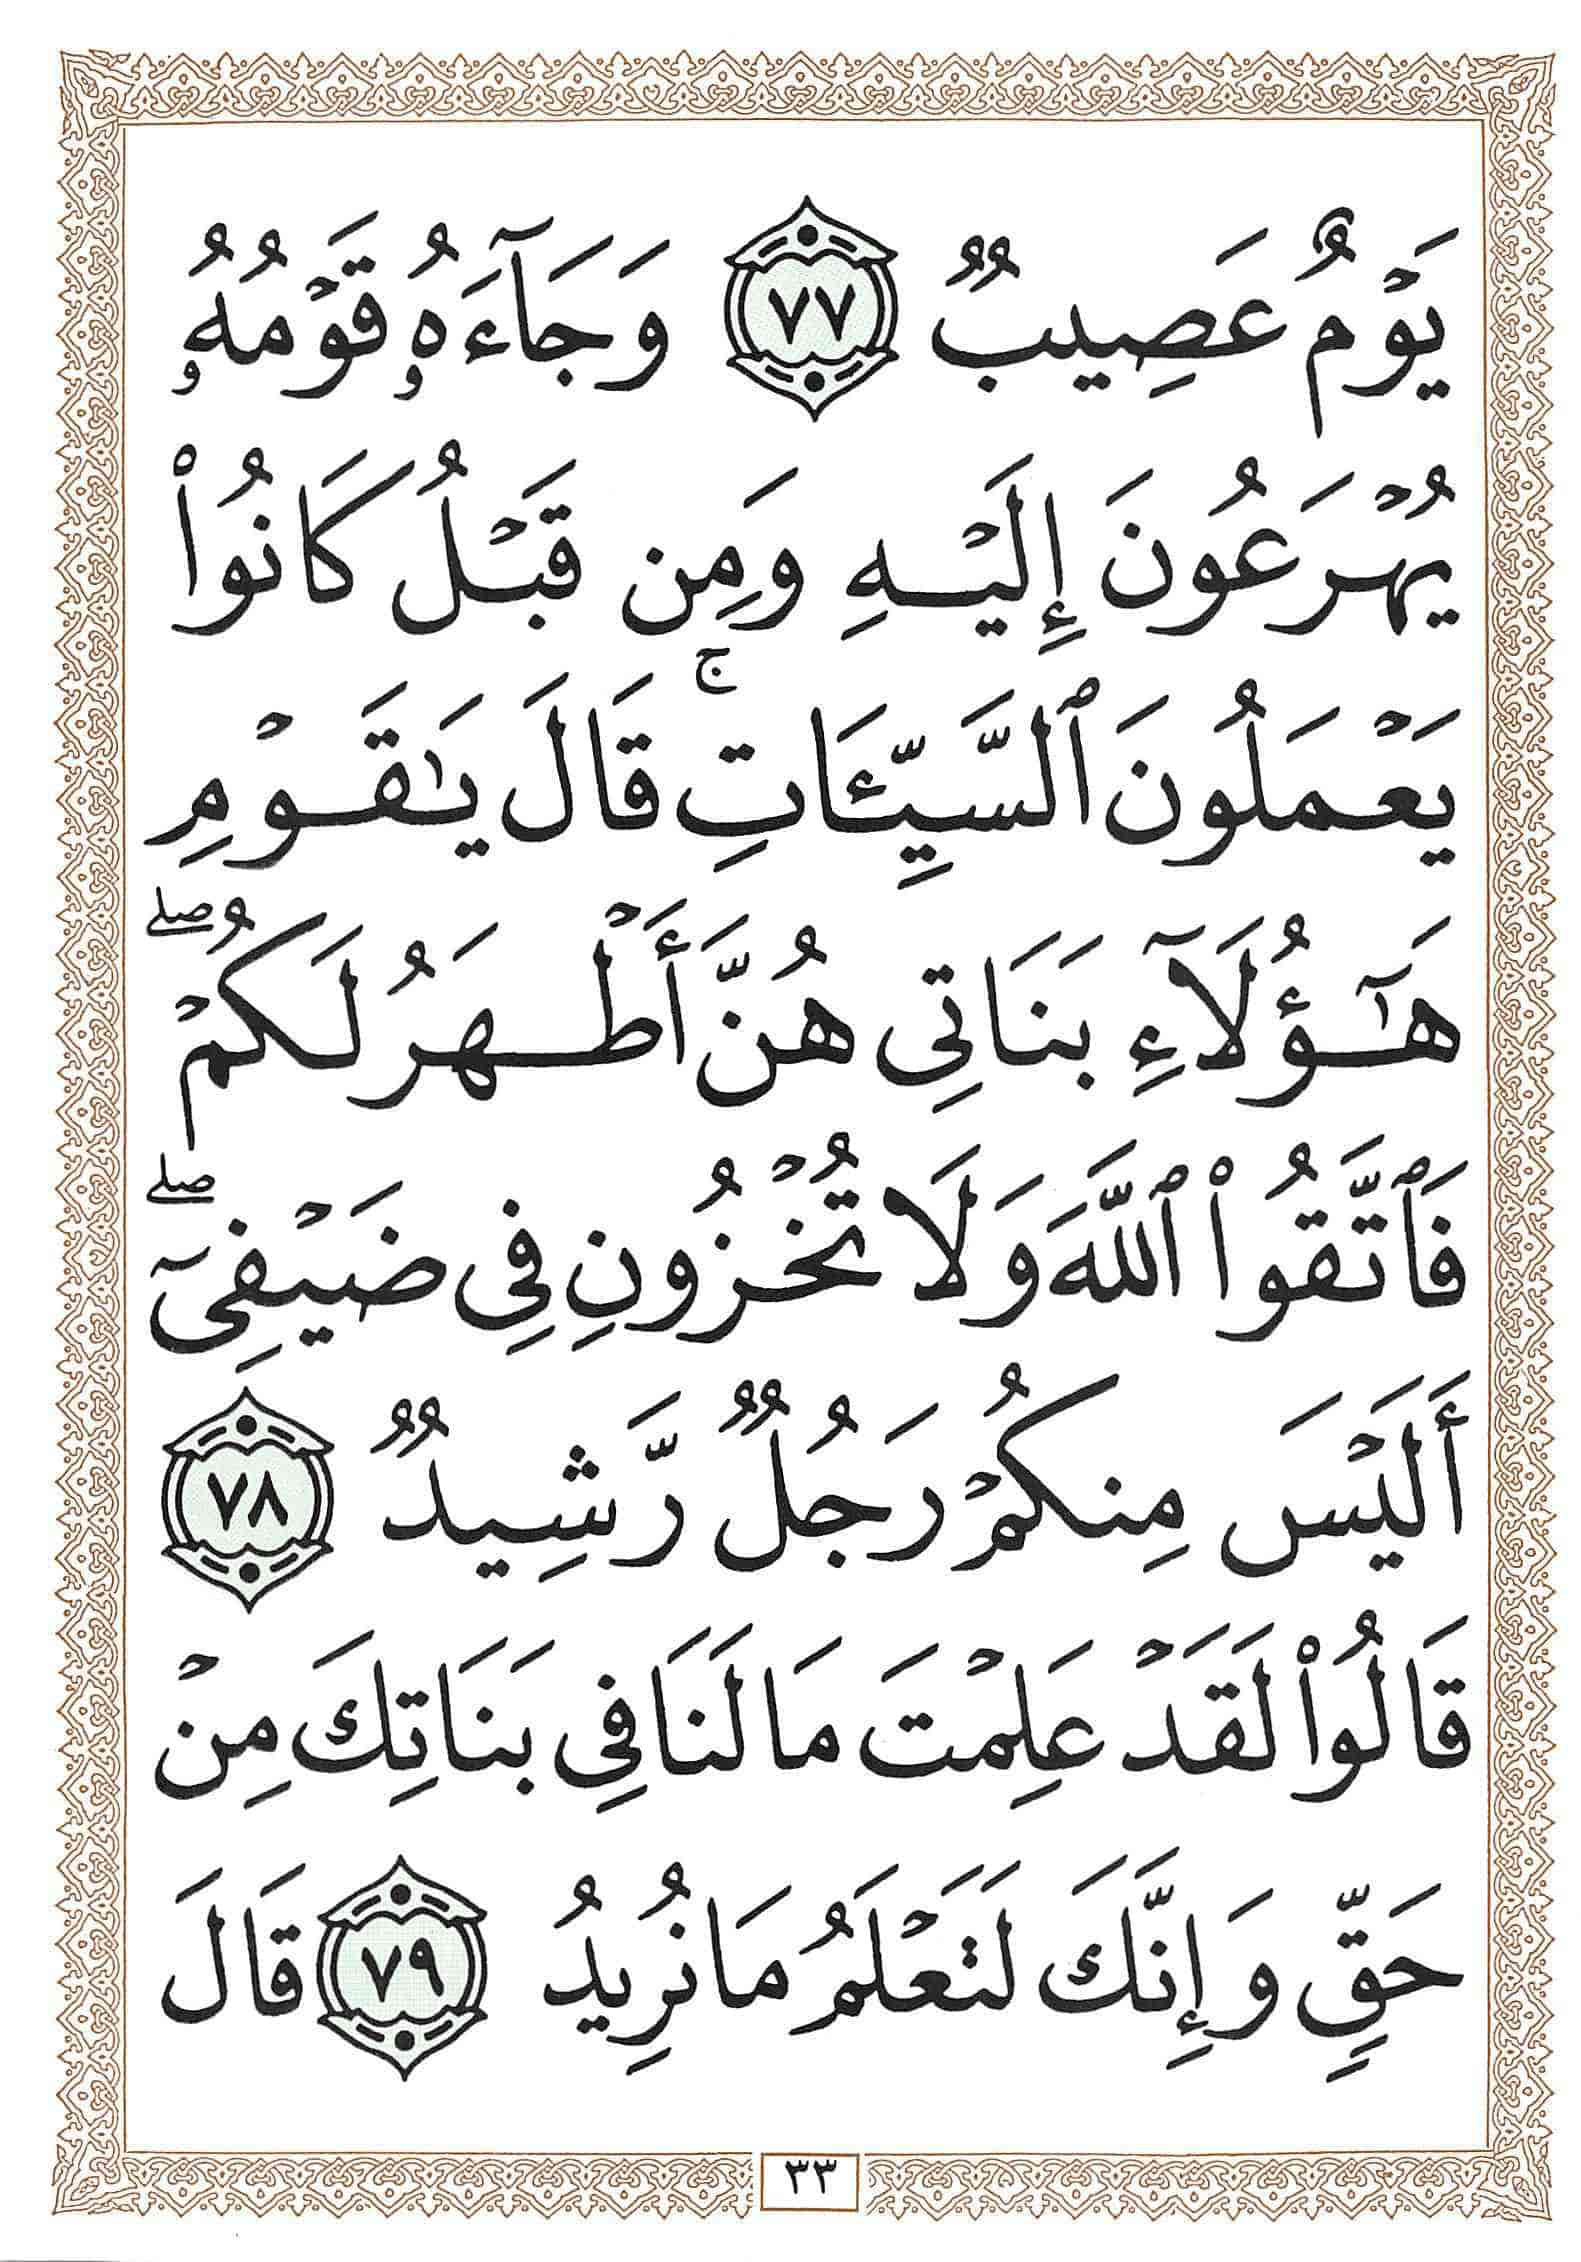 يَوْمٌ عَصِيبٌ ٧٧ وَجَآءَهُۥ قَوْمُهُۥ
يُهْرَعُونَ إِلَيْهِ وَمِن قَبْلُ كَانُوا۟
يَعْمَلُونَ ٱلسَّيِّـَٔاتِ ۚ قَالَ يَـٰقَوْمِ
هَـٰٓؤُلَآءِ بَنَاتِى هُنَّ أَطْهَرُ لَكُمْ ۖ
فَٱتَّقُوا۟ ٱللَّهَ وَلَا تُخْزُونِ فِى ضَيْفِىٓ ۖ
أَلَيْسَ مِنكُمْ رَجُلٌ رَّشِيدٌ ٧٨
قَالُوا۟ لَقَدْ عَلِمْتَ مَا لَنَا فِى بَنَاتِكَ مِنْ
حَقٍّ وَإِنَّكَ لَتَعْلَمُ مَا نُرِيدُ ٧٩ قَالَ
٣٣